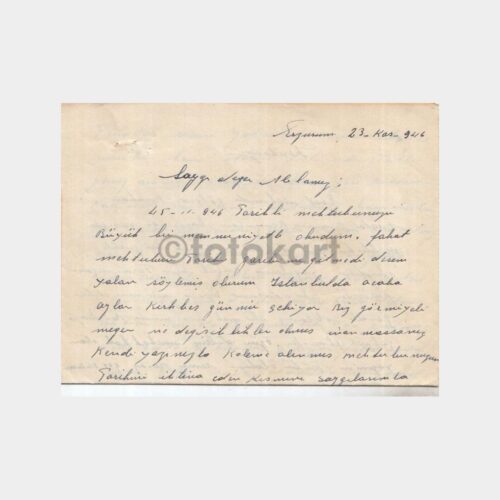 Erzurum 23-Kas-946
Saygı değer Ablamız;
45-11-946 Tarihli mektubunuzu
Büyük bir memnuniyetle okudum, fakat
mektubun Tarihi garibime gitmedi dersem
yalan söylemiş olurum İstanbulda acaba
aylar kırkbeş gün mü çekiyor Biz görmiyeli
meğer ne değişiklikler olmuş inanmassanız
Kendi yazınızla kaleme alınmış mektubunuzun
Tarihini ihtiva eden kısmını saygılarımla
©fotokart